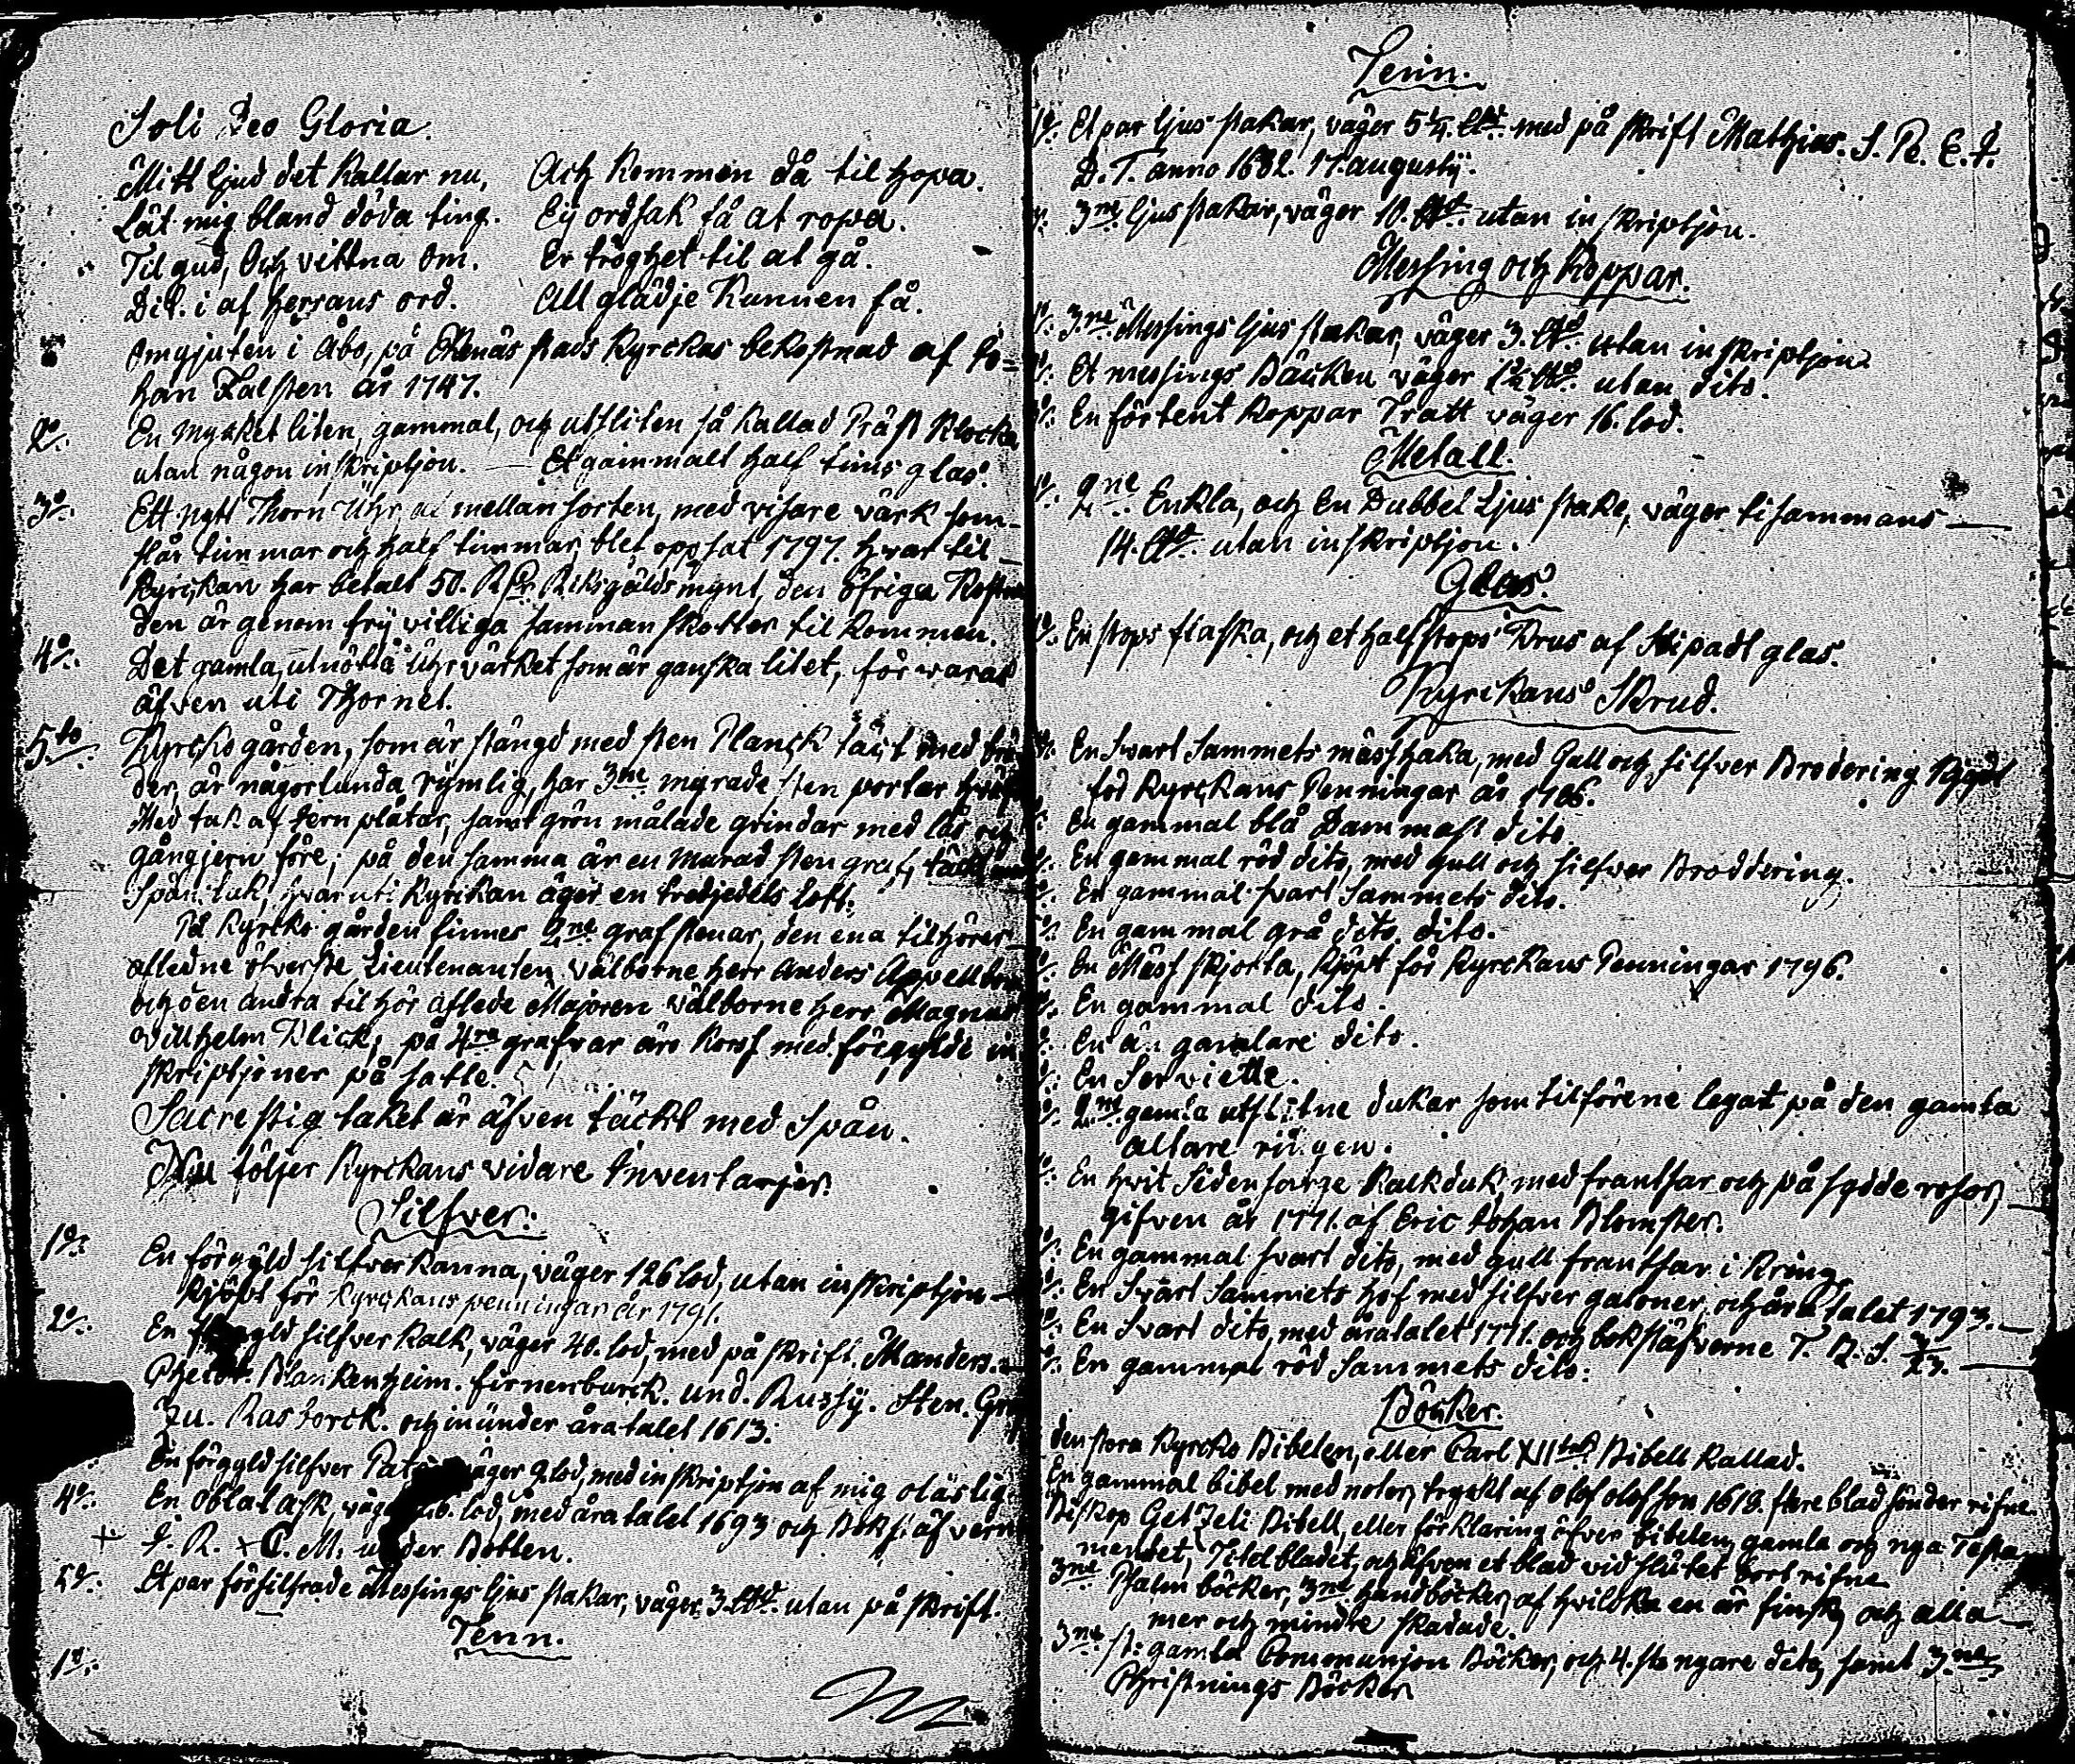 Soli Deo Gloria.
Mitt ljud det kallar nu, Och kommen då til hopa.
Låt mig bland döda ting. Ej ordsak få at ropa.
Til gud, Och vittna om. Er tröghet til at gå.
Did. i af herrans ord. All glädje kunnen få.
omgjuten i Åbo, på Ekenäs stads Kyrckas bekostnad af Jo=
han Falsten år 1747.
2o. En mycket liten, gammal, och utsliten så kallad Präst Klocka
utan någon inskriptjon. — Et gammalt half tims glas.
3o. Ett nytt Thorn Uhr af mellan sorten, med visare värk som
slår timmar och half timmar, blef oppsat 1797. hvar til
Kyrckan har betalt 50. Rdr Riksgälds mynt, den öfriga Kostna
den är genom frij villiga samman skotter til kommen.
4o. Det gamla, utnötta Uhrvärket som är ganska litet, förwaras
äfven uti Thornet.
5to. Kyrcko gården, som är stängd med sten Planck täckt med brä
der, är någorlunda rymlig, har 3ne murade sten portar
Med tak af Jern plåtar, samt grön målade grindar med lås och
gångjern före; på den samma är en murad sten graf, täckt med
Spån tak, hvar uti Kyrckan äger en tredjedels lott.
På Kyrcko gården finnes 2ne graf stenar, den ena tilhörer
afledne öfverste Lieutenanten välborne herr Anders Appelbom
och den andra til hör aflede Majoren välborne herr Magnus
Willhelm Klick; på 4ra grafvar äro Korss med förgylde in
skriptjoner på satte.
Sacrestig taket är äfven täckt med Spån.
Nu följer Kyrckans vidare Inventarjer.
Silfver.
1o. En förgyld silfver Kanna, väger 126 lod, utan inskriptjon —
Kjöpt för Kyrckans penningar år 1791.
2o. En förgyld silfver Kalk, väger 40. lod, med på skrift. Manders.
Blankenheim. firnenburck. und. Russy. Sten. Gr
Zu. Rasborck. och inunder åratalet 1613.
En förgyld silfver Paten väger 9. lod, med inskriptjon af mig oläslig.
4o. En Oblat ask, väger 26. lod, med åratalet 1693 och Bokstäfvern
+ J. R. + C. M. under Botten.
5o. Et par försilfrade Messings ljus stakar, väger 3. lld. utan på skrift.
Tenn.
1o.
Tenn.
1o. Et par ljus stakar, väger 5 1/4. lld. med på skrift Mathias. S. Pe. E. J.
D. T. anno 1682. 17. augustij.
3ne ljus stakar, väger 10. lld. utan in skriptjon.
Messing och Koppar.
3ne Messings ljus stakar, väger 3. lld. utan in skriptjon
Et messings Bäcken väger 1 1/2 lld. utan dito.
En förtent Koppar Tratt väger 16. lod.
Metall.
2ne Enkla, och En Dubbel Ljus stake, väger tisammans —
14. lld. utan inskriptjon.
Glas.
En stops flaska, och et half stops Krus af slipadt glas.
Kyrckans Skrud.
En Svart Sammets mässhaka, med Gull och silfver Brodering Kjöpt
för Kyrckans Penningar år 1786.
En gammal blå Dammast dito
En gammal röd dito, med gull och silfver Broddering.
En gammal svart Sammets dito.
En gammal grå dito dito.
En Mäss skjorta, Kjöpt för Kyrckans Penningar 1796.
En gammal dito.
En än gamlare dito.
En Serviette.
2ne gamla utslitne dukar som tilförene legat på den gamla
altare ringen.
En hvit Siden sarge Kalkduk, med frantsar och på sydde rosor,
gifven år 1771. af Eric Johan Blomster.
En gammal svart dito, med gull frantsar i Kring.
En Svart Sammets håf med silfver galoner, och åratalet 1793. —
En Svart dito, med åratalet 1771. och bokstäfverne T. R. S. 3/23. —
En gammal röd Sammets dito:
Böcker.
den stora Kyrcko Bibelen, eller Carl XIItes Bibell Kallad.
En gammal bibel med noter, tryckt af olof olofson 1618. flere blad sönder rifne
Biskop Getzeli Bibell, eller förklaring öfver bibelen, gamla och nya Testa
mentet, Titelbladet, och äfven et blad vid slutet bort rifne
3ne Psalm böcker, 3ne handböcker, af hvilcka en är finsk, och alla —
mer och mindre skadade.
3ne st: gamla Communjon Böcker, och 4. st. nyare dito, samt 3ne
Christnings Böcker